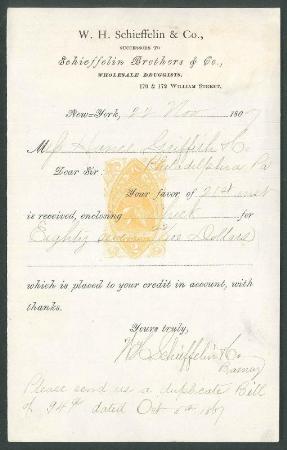 W. H. Schieffelin & Co.,
SUCCESSORS TO
Schieffelin Brothers & Co.,
WHOLESALE DRUGGISTS,
170 & 172 William Street,
New-York, 22 Nov 1867
M J Hance Griffith & Co
Philadelphia Pa
Dear Sir:
Your favor of 21st inst
is received, enclosing check for
Eighty seven Dollars
which is placed to your credit in account, with
thanks.
Yours truly,
W H Schieffelin & Co
Please send us a duplicate Bill
of dated Oct 1867